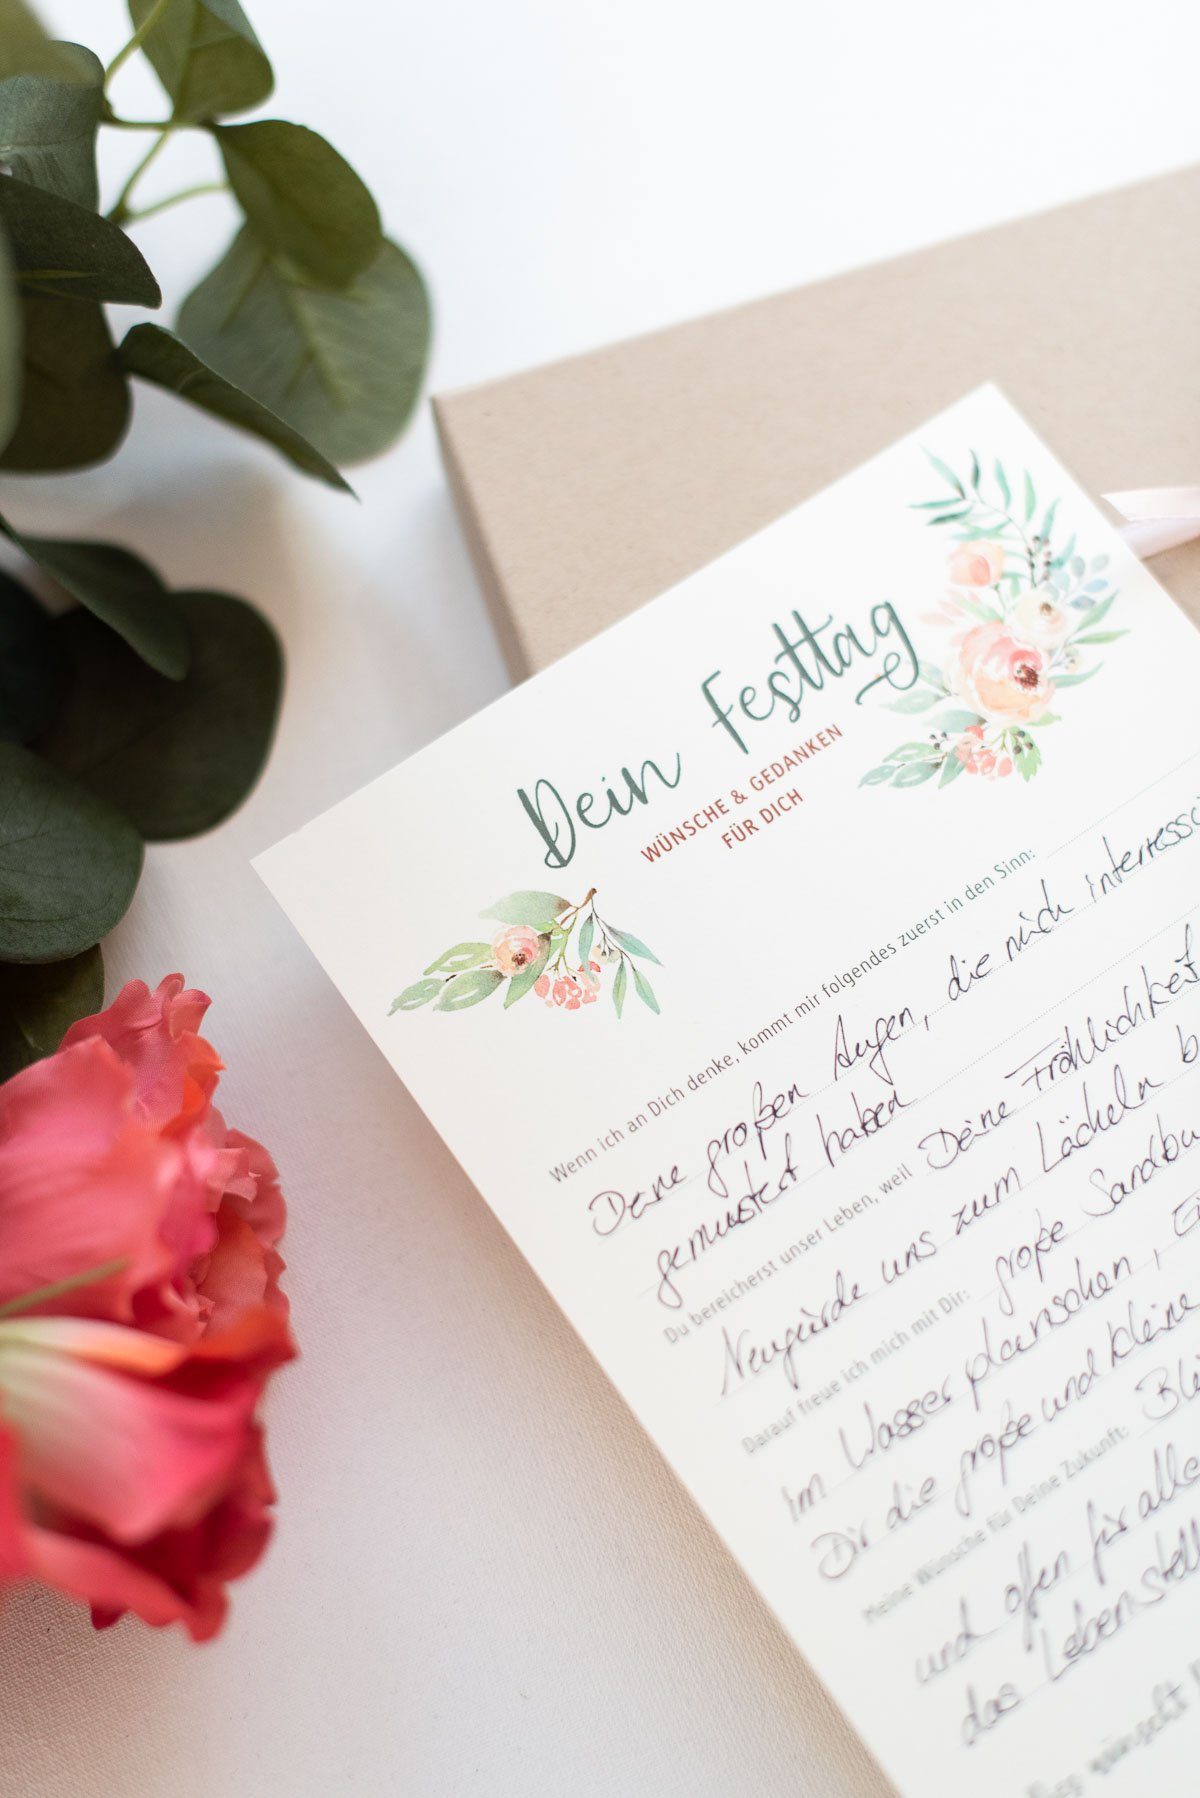 Dein Festtag
WÜNSCHE & GEDANKEN
FÜR DICH
Wenn ich an Dich denke, kommt mir folgendes zuerst in den Sinn:
Deine großen Augen, die mich
gemustert haben
Du bereicherst unser Leben, weil Deine Fröhlichkeit
Neugierde uns zum Lächeln b
Darauf freue ich mich mit Dir: große
im Wasser planschen,
Dir die große und kleine
Meine Wünsche für Deine Zukunft:
und offen für alle
das
wünscht